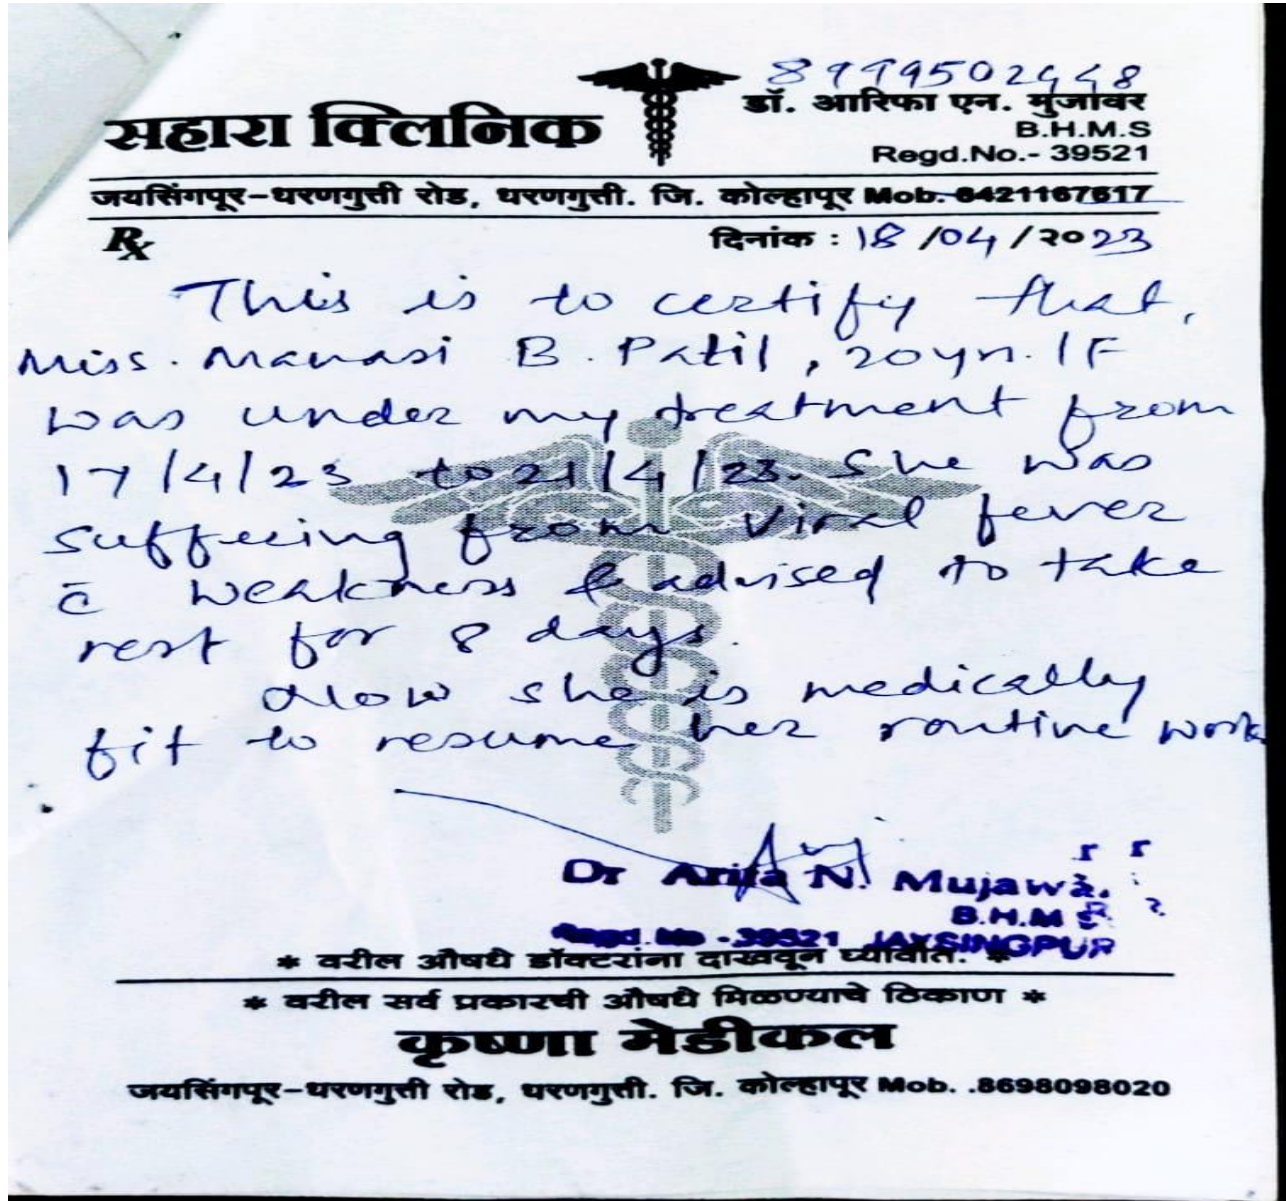 8999502448
सहारा क्लिनिक
डॉ. आरिफा एन. मुजावर
B.H.M.S
Regd.No.- 39521
जयसिंगपूर-धरणगुत्ती रोड, धरणगुत्ती. जि. कोल्हापूर Mob. 8421167617
Rx
दिनांक : 18/04/२०23
This is to certify that,
Miss. Manasi B. Patil, 20yn. / F
was under my treatment from
17/4/23 to 21/4/23. She was
suffeeing from viral fever
c̄ weakness & advised to take
rest for 8 days.
Now she is medically
fit to resume her routine work
Dr Arifa N. Mujawa.
B.H.M S
Regd. No - 39521 JAYSINGPUR
* वरील औषधे डॉक्टरांना दाखवून घ्यावीत. *
* वरील सर्व प्रकारची औषधे मिळण्याचे ठिकाण *
कृष्णा मेडीकल
जयसिंगपूर-धरणगुत्ती रोड, धरणगुत्ती. जि. कोल्हापूर Mob. .8698098020